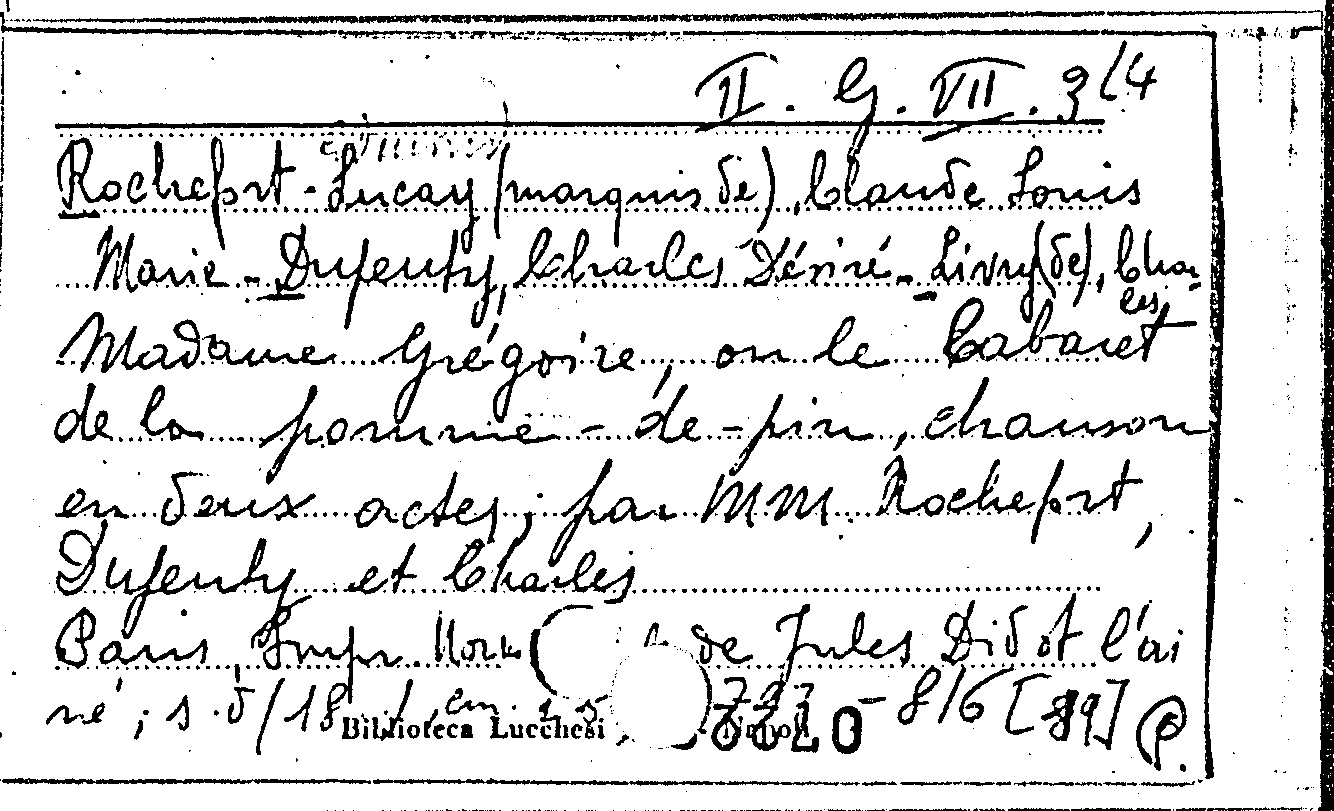 II. G. VII. 3(4
Rochefort-Lucay (marquis de), Claude Louis
Marie - Dufeuty, Charles Désiré - Livry (de), Char-
les
Madame Grégoire, ou le Cabaret
de la pomme-de-pin, chanson
en deux actes; par MM. Rochefort,
Dufeuty et Charles
Paris, Impr. de Jules Didot l'ai
né; s.d/18 cm. - 816 [89] P.
Biblioteca Lucchesi